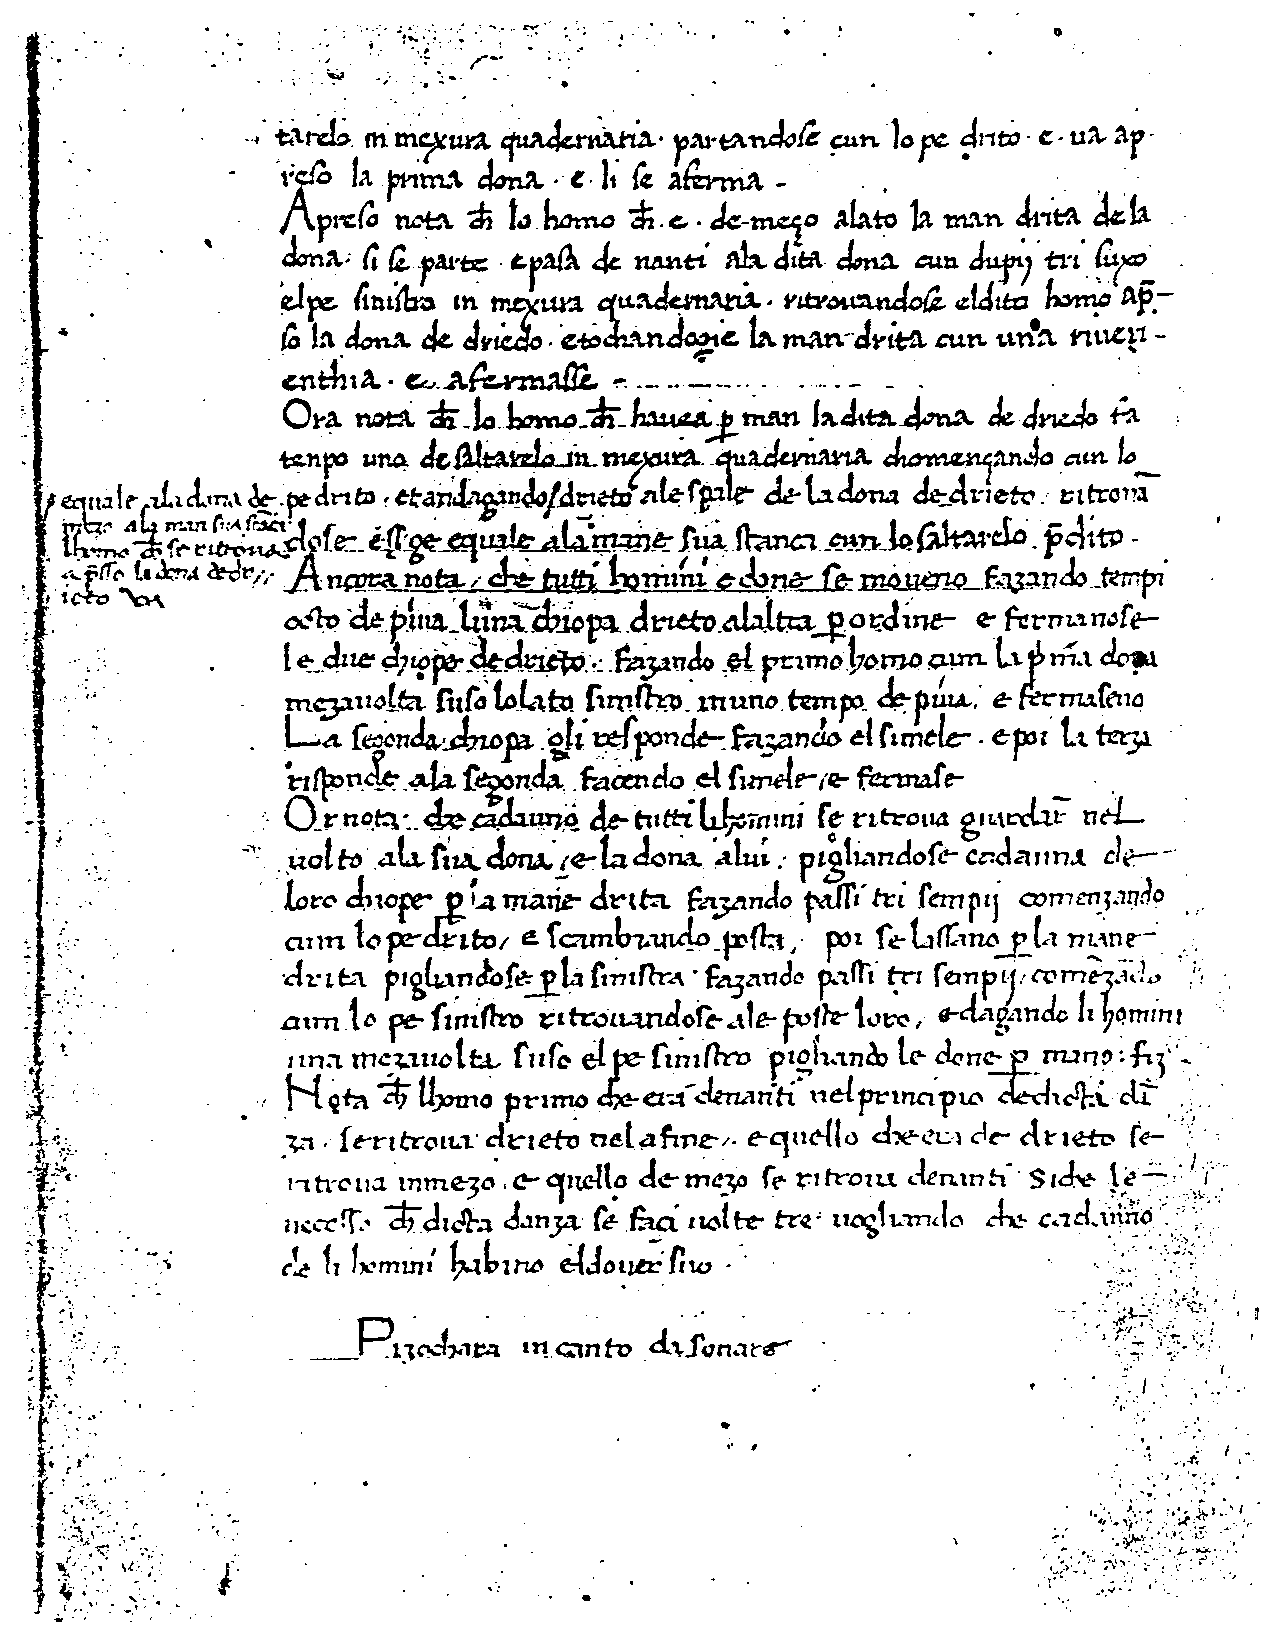 tarelo in mexura quadernaria · partandose cun lo pe drito · e · ua ap
reso la prima dona · e · li se aferma -
Apreso nota ch̄ lo homo ch̄ · e · de meço alato la man drita de la
dona · si se parte · e pasa de nanti ala dita dona cun dupij tri suxo
el pe sinistro in mexura quadernaria · ritrouandose el dito homo ap̄-
so la dona de driedo · e tochandogie la man drita cun una riuer-
enthia · e · afermasse -
Ora nota ch̄ lo homo ch̄ hauea p man la dita dona de driedo fa
tenpo uno de saltarelo in mexura quadernaria chomençando cun lo
pe drito · et andagando / drieto ale spale de la dona de drieto · ritroua
dose esser equale ala mane sua stanca cun lo saltarelo p̄dito -
equale ala dona de
mezo ala man sua stāca
lhomo ch̄ se ritroua
ap̄sso la dona de dr //
ieto
Ancora nota / che tutti homini e done se moueno fazando tempi
octo de piua luna chiopa drieto alaltra p ordine e fermanose
le due chiope de drieto · fazando el primo homo cum la p̄ma dona
mezauolta suso lo lato sinistro in uno tempo de piua · e fermaseno
La segonda chiopa gli responde fazando el simele · e poi la terza
risponde ala segonda facendo el simele / e fermase
Or nota · che cadauno de tutti li homini se ritroua guardar nel
uolto ala sua dona / e la dona a lui · pigliandose cadauna de
loro chiope p la mane drita fazando passi tri sempij comenzando
cum lo pe drito / e scambiando posta / poi se lassano p la mane
drita pigliandose p la sinistra · fazando passi tri sempij / comēzādo
cum lo pe sinistro ritrouandose ale poste loro / e dagando li homini
una mezauolta suso el pe sinistro pigliando le done p mano : fiz
Nota ch̄ lhomo primo che era denanti nel principio de dicta dā
za · se ritroua drieto nela fine / · e quello che era de drieto se
ritroua in mezo · e quello de mezo se ritroua denanti Siche le
necesso ch̄ dicta danza se faci uolte tre uogliando che cadauno
de li homini habino el douer suo ·
Pizochara in canto da sonare